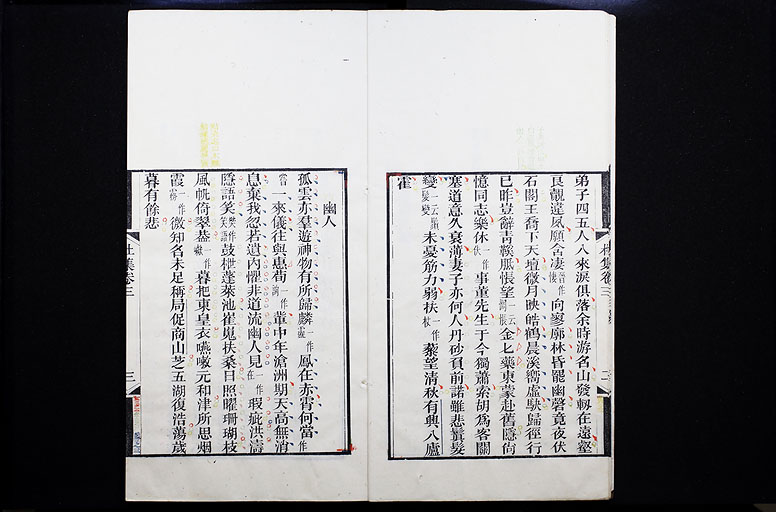 弟子四五人入來淚俱落余時游名山發軔在遠壑
良覿違夙願含凄向寥廓林昏罷幽磬竟夜伏
石閣王喬下天壇微月映皓鶴晨溪嚮虛駃歸徑行
已昨豈辭青鞋胝悵望金匕藥東蒙赴舊隱尚
憶同志樂休一作伏事董先生于今獨蕭索胡為客關
塞道意久衰薄妻子亦何人丹砂負前諾雖悲鬒髮
變未憂筋力弱扶一作杖藜望清秋有興入廬
霍
幽人
孤雲亦羣遊神物有所歸麟一作靈鳳在赤霄何當一作
嘗一來儀往與惠荀一作詢輩中年滄洲期天高無消
息棄我忽若遺內懼非道流幽人見一作在瑕疵洪濤
隱語笑鼓枻蓬萊池崔嵬扶桑日照曜珊瑚枝
風帆倚翠蓋暮把東皇衣嚥漱元和津所思烟
霞一作霧微知名未足稱局促商山芝五湖復浩蕩歲
暮有餘悲
杜集卷三
三
杜集卷三
三